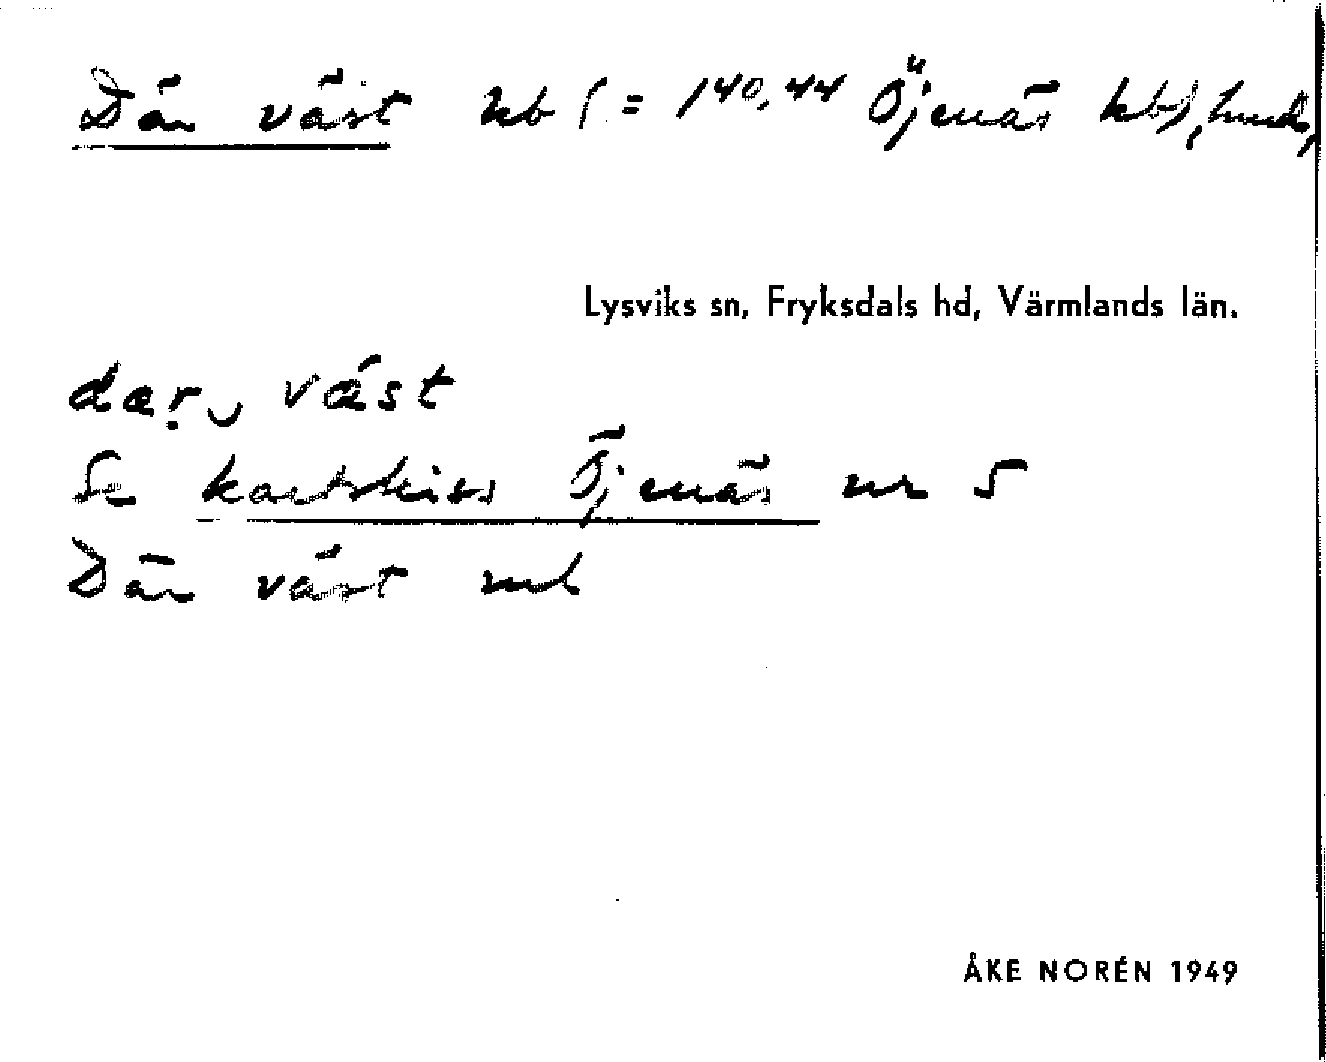 Där väst kb (= 140,44 Öjenäs kb), hmd,
Lysviks sn, Fryksdals hd, Värmlands län.
dæṛ‿ væ̀st
Se kartskiss Öjenäs nr 5
Där väst mb
ÅKE NORÉN 1949